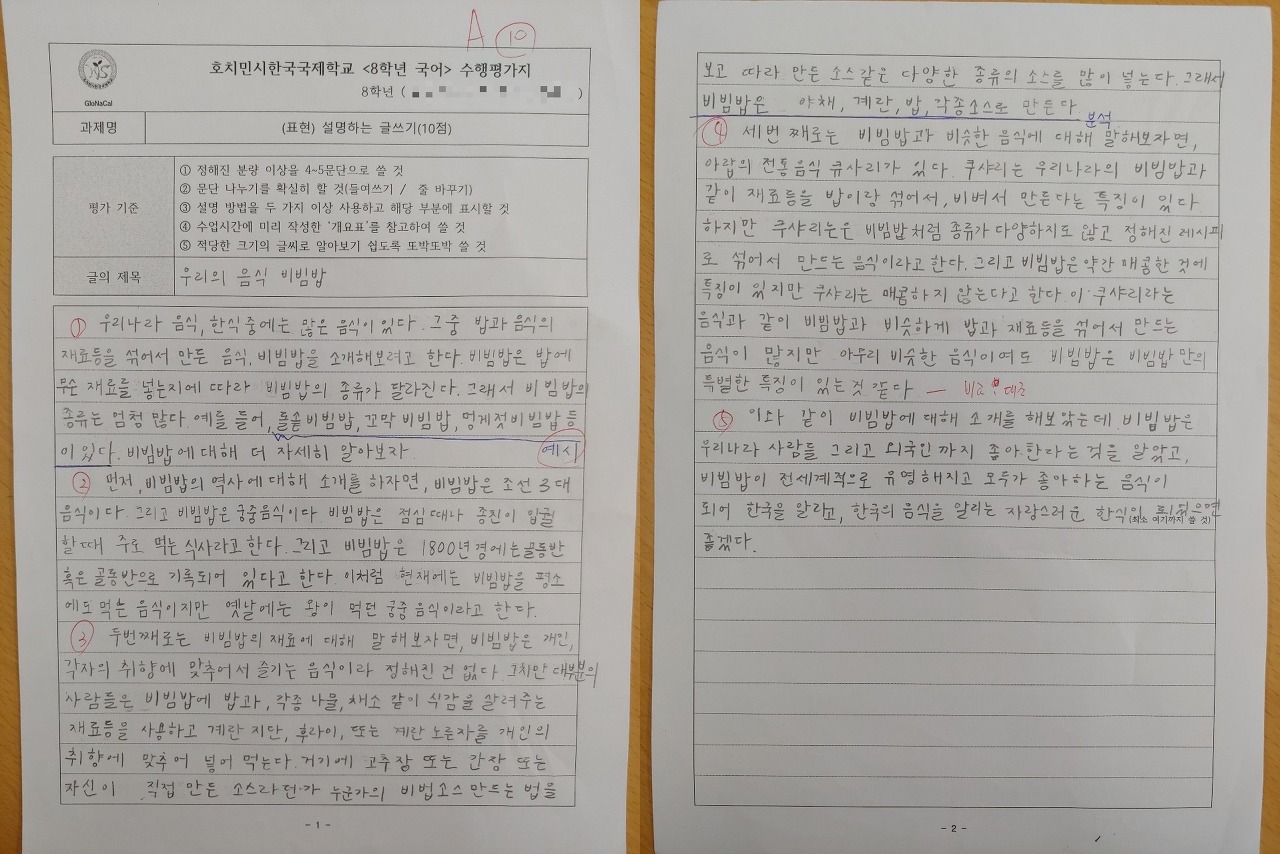 A 10
호치민시한국국제학교 <8학년 국어> 수행평가지
8학년 ( )
GloNaCal
과제명
(표현) 설명하는 글쓰기(10점)
평가 기준
① 정해진 분량 이상을 4~5문단으로 쓸 것
② 문단 나누기를 확실히 할 것(들여쓰기 / 줄 바꾸기)
③ 설명 방법을 두 가지 이상 사용하고 해당 부분에 표시할 것
④ 수업시간에 미리 작성한 '개요표'를 참고하여 쓸 것
⑤ 적당한 크기의 글씨로 알아보기 쉽도록 또박또박 쓸 것
글의 제목
우리의 음식 비빔밥
① 우리나라 음식, 한식 중에는 많은 음식이 있다. 그중 밥과 음식의
재료들을 섞어서 만든 음식, 비빔밥을 소개해보려고 한다. 비빔밥은 밥에
무슨 재료를 넣는지에 따라 비빔밥의 종류가 달라진다. 그래서 비빔밥의
종류는 엄청 많다. 예들 들어, 돌솥비빔밥, 꼬막 비빔밥, 멍게젓비빔밥 등
이 있다. 비빔밥에 대해 더 자세히 알아보자. 예시
② 먼저, 비빔밥의 역사에 대해 소개를 하자면, 비빔밥은 조선 3대
음식이다. 그리고 비빔밥은 궁중음식이다. 비빔밥은 점심때나 종친이 입궐
할때 주로 먹는 식사라고 한다. 그리고 비빔밥은 1800년경에는 골동반
혹은 골동반으로 기록되어 있다고 한다. 이처럼 현재에는 비빔밥을 평소
에도 먹는 음식이지만 옛날에는 왕이 먹던 궁중 음식이라고 한다.
③ 두번째로는 비빔밥의 재료에 대해 말해보자면, 비빔밥은 개인,
각자의 취향에 맞추어서 즐기는 음식이라 정해진 건 없다. 그치만 대부분의
사람들은 비빔밥에 밥과, 각종 나물, 채소 같이 식감을 살려주는
재료들을 사용하고 계란 지단, 후라이, 또는 계란 노른자를 개인의
취향에 맞추어 넣어 먹는다. 거기에 고추장 또는 간장 또는
자신이 직접 만든 소스라던가 누군가의 비법소스 만드는 법을
- 1 -
보고 따라 만든 소스같은 다양한 종류의 소스를 많이 넣는다. 그래서
비빔밥은 야채, 계란, 밥, 각종소스로 만든다. 분석
④ 세번 째로는 비빔밥과 비슷한 음식에 대해 말해보자면,
아랍의 전통음식 큐사리가 있다. 쿠샤리는 우리나라의 비빔밥과
같이 재료들을 밥이랑 섞어서, 비벼서 만든다는 특징이 있다.
하지만 쿠샤리는은 비빔밥처럼 종류가 다양하지도 않고 정해진 레시피
로 섞어서 만드는 음식이라고 한다. 그리고 비빔밥은 약간 매콤한 것에
특징이 있지만 쿠샤리는 매콤하지 않는다고 한다. 이 쿠샤리라는
음식과 같이 비빔밥과 비슷하게 밥과 재료들을 섞어서 만드는
음식이 많지만 아무리 비슷한 음식이여도 비빔밥은 비빔밥 만의
특별한 특징이 있는 것 같다. — 비교 대조
⑤ 이와 같이 비빔밥에 대해 소개를 해보았는데. 비빔밥은
우리나라 사람들 그리고 외국인 까지 좋아한다는 것을 알았고,
비빔밥이 전세계적으로 유명해지고 모두가 좋아하는 음식이
되어 한국을 알리고, 한국의 음식을 알리는 자랑스러운 한식이 되었으면
(최소 여기까지 쓸 것)
좋겠다.
- 2 -